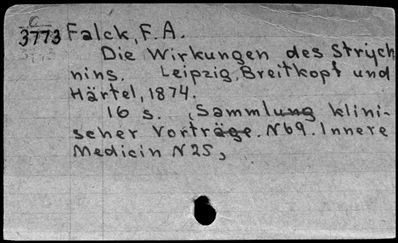 a
3773 Falck, F. A.
Die Wirkungen des Strych-
nins. Leipzig, Breitkopf und
Härtel, 1874.
16 s. (Sammlung klini-
scher Vorträge. N69. Innere
Medicin N25,